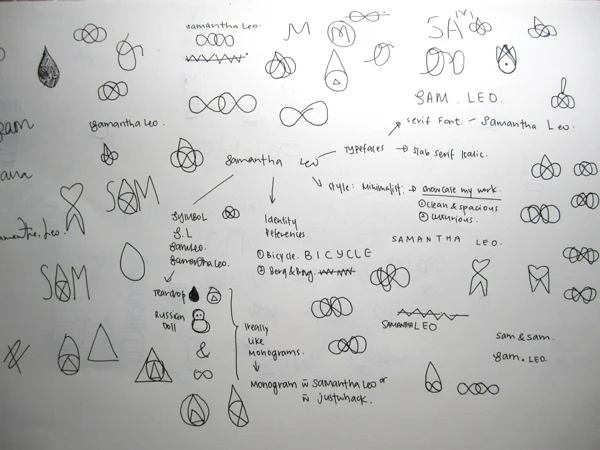 Samantha Leo.
M
M
SAM
SAM. LEO.
serif Font - Samantha Leo.
Sam
Samantha Leo.
Samantha Leo
Typefaces
Slab Serif Italic.
ana
Style: Minimalist
showcase my work.
① clean & spacious
② luxurious.
SAM
Samantha. Leo.
SYMBOL
S.L
SamLeo.
Samantha Leo.
Identity
References.
① Bicycle. BICYCLE
② Berg & Berg.
SAMANTHA LEO.
SAM
Teardrop
Russian
Doll
&
I really
Like
Monograms.
Monogram w SamanthaLeo or
w justwhack.
SAMANTHA LEO
sam & sam.
Sam. LEO